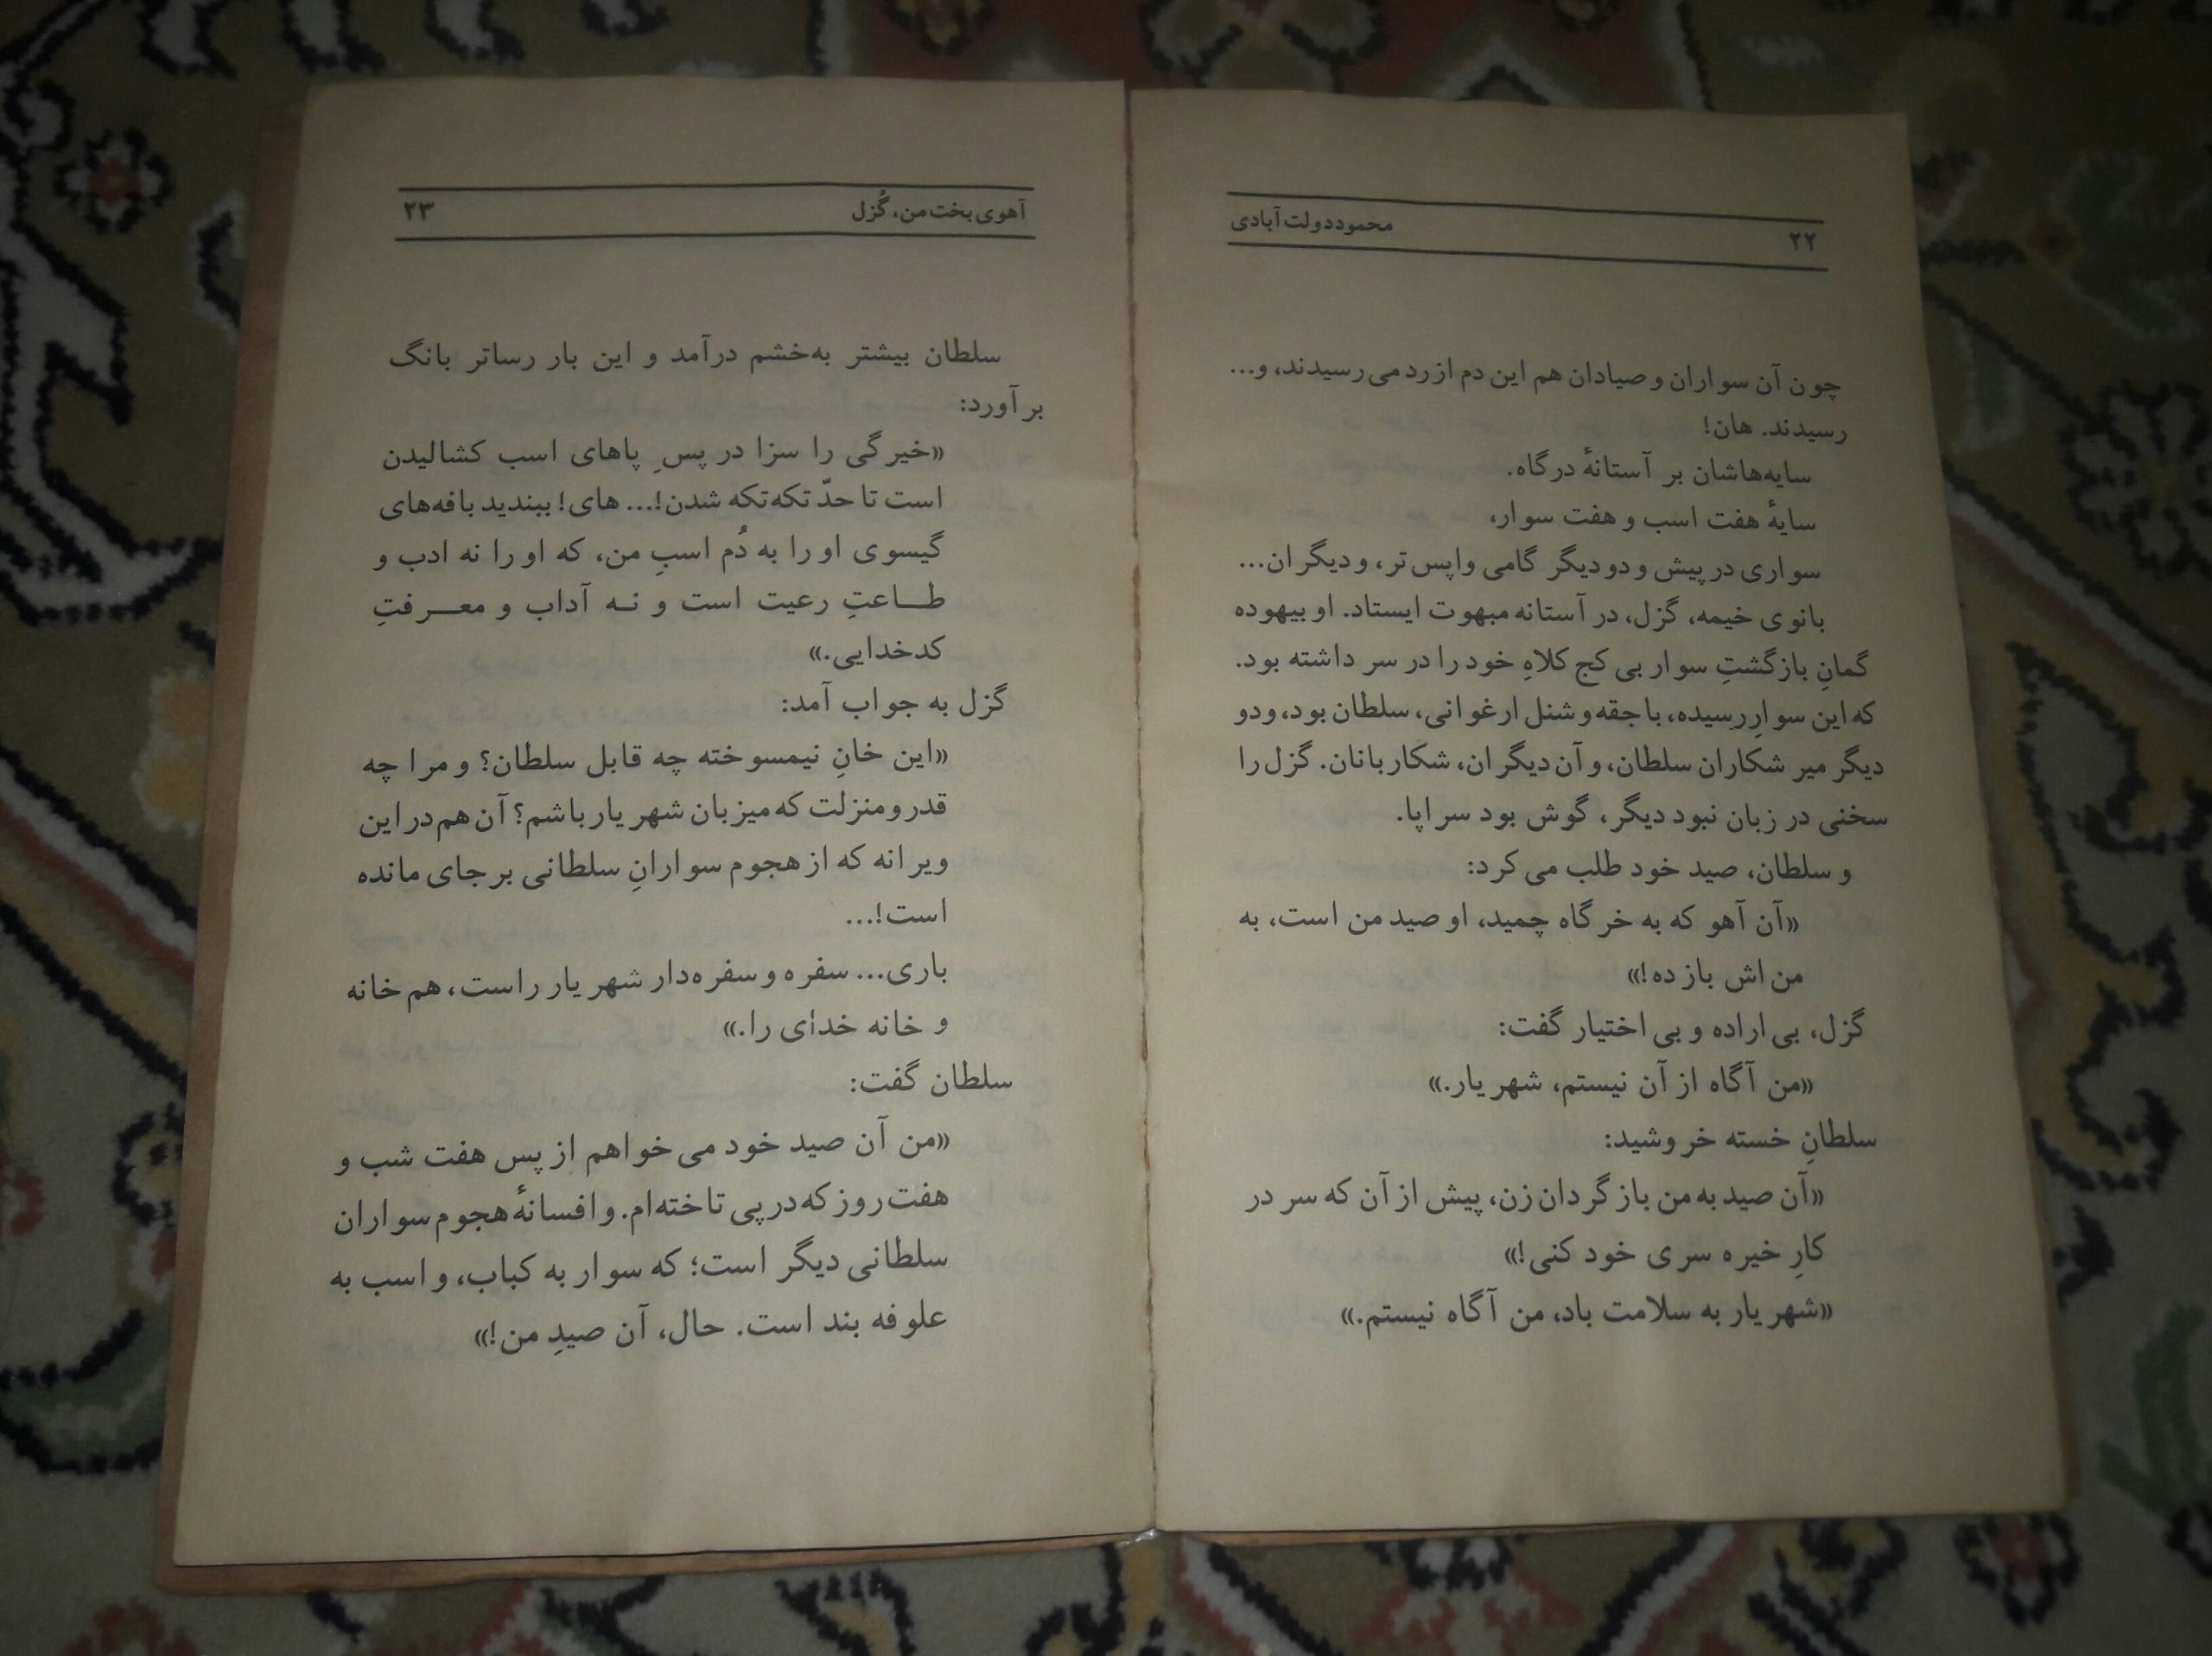 ۲۲
محمود دولت آبادی
چون آن سواران و صیادان هم این دم از رد می رسیدند، و...
رسیدند. هان!
سایه‌هاشان بر آستانهٔ درگاه.
سایهٔ هفت اسب و هفت سوار،
سواری در پیش و دو دیگر گامی واپس تر، و دیگران...
بانوی خیمه، گزل، در آستانه مبهوت ایستاد. او بیهوده
گمانِ بازگشتِ سوار بی کج کلاهِ خود را در سر داشته بود.
که این سوارِ رسیده، با جقه و شنل ارغوانی، سلطان بود، و دو
دیگر میر شکاران سلطان، و آن دیگران، شکاربانان. گزل را
سخنی در زبان نبود دیگر، گوش بود سراپا.
و سلطان، صید خود طلب می کرد:
«آن آهو که به خرگاه چمید، او صید من است، به
من اش باز ده!»
گزل، بی اراده و بی اختیار گفت:
«من آگاه از آن نیستم، شهریار.»
سلطانِ خسته خروشید:
«آن صید به من باز گردان زن، پیش از آن که سر در
کارِ خیره سری خود کنی!»
«شهریار به سلامت باد، من آگاه نیستم.»
آهوی بخت من، گُزل
۲۳
سلطان بیشتر به‌خشم درآمد و این بار رساتر بانگ
برآورد:
«خیرگی را سزا در پسِ پاهای اسب کشالیدن
است تا حدّ تکه‌تکه شدن!... های! ببندید بافه‌های
گیسوی او را به دُم اسبِ من، که او را نه ادب و
طـــاعتِ رعیت است و نـه آداب و معـــرفتِ
کدخدایی.»
گزل به جواب آمد:
«این خانِ نیمسوخته چه قابل سلطان؟ و مرا چه
قدر و منزلت که میزبان شهریار باشم؟ آن هم در این
ویرانه که از هجوم سوارانِ سلطانی بر جای مانده
است!...
باری... سفره و سفره‌دار شهریار راست، هم خانه
و خانه خدای را.»
سلطان گفت:
«من آن صید خود می خواهم از پس هفت شب و
هفت روز که در پی تاخته‌ام. و افسانهٔ هجوم سواران
سلطانی دیگر است؛ که سوار به کباب، و اسب به
علوفه بند است. حال، آن صیدِ من!»